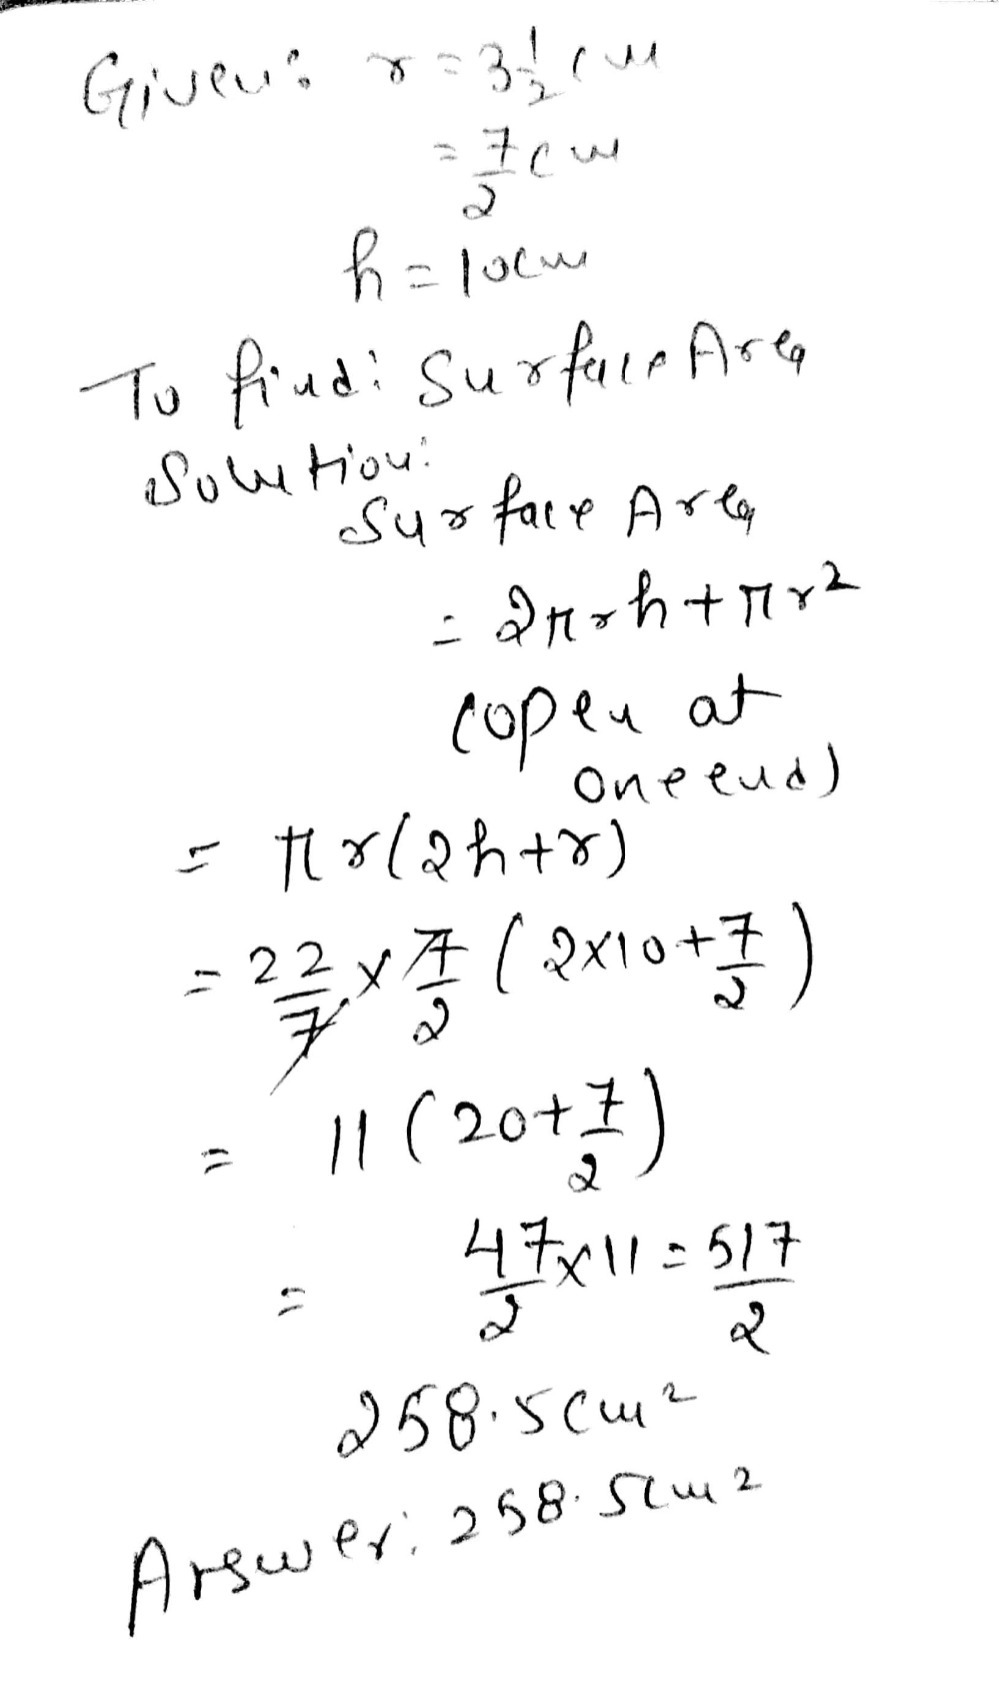 Given: r = 3 1/2 cm
= 7/2 cm
h = 10cm
To find: Surface Area
Solution:
Surface Area
= 2πrh + πr²
(open at
one end)
= πr(2h+r)
= 22/7 × 7/2 (2×10+7/2)
= 11(20+7/2)
= 47/2×11 = 517/2
258.5cm²
Answer: 258.5cm²